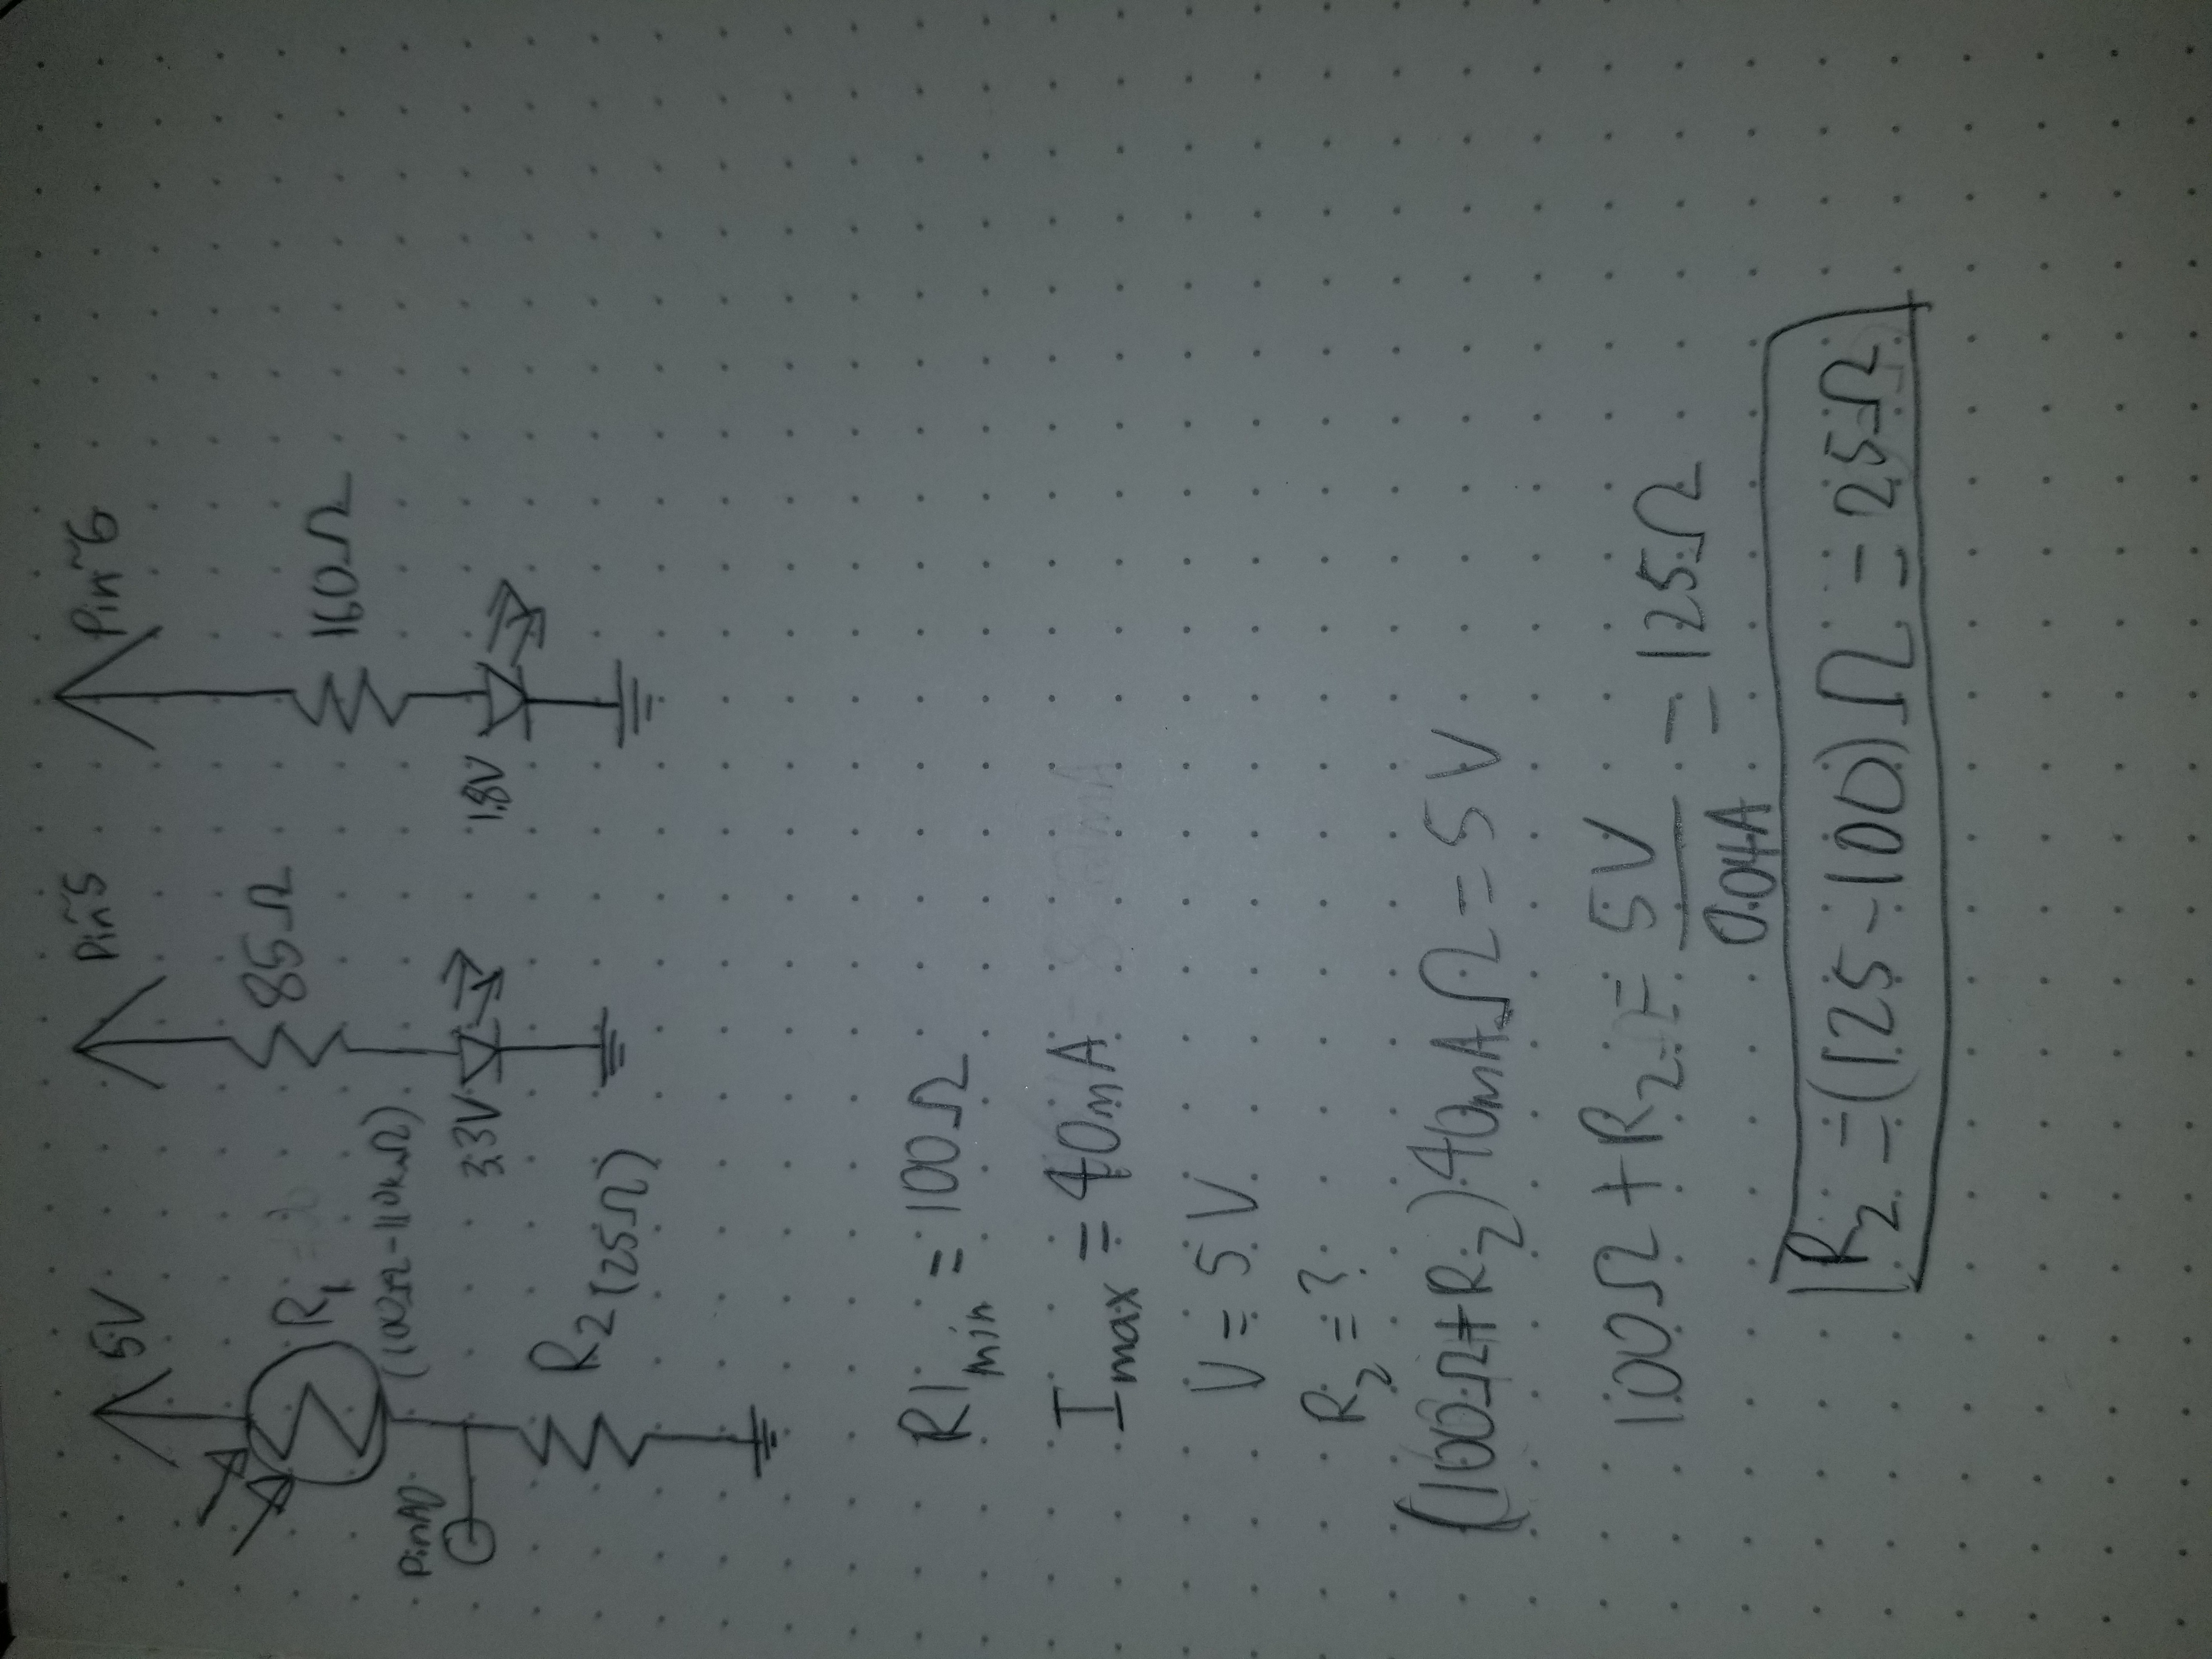 5V
Pin~5
Pin~6
R1
(100Ω-110kΩ)
PinA0
R2 (25Ω)
85Ω
3.3V
160Ω
1.8V
R1min = 100Ω
Imax = 40mA
V = 5V
R2 = ?
(100Ω+R2)40mAΩ = 5V
100Ω + R2 = 5V/0.04A = 125Ω
R2 = (125-100)Ω = 25Ω